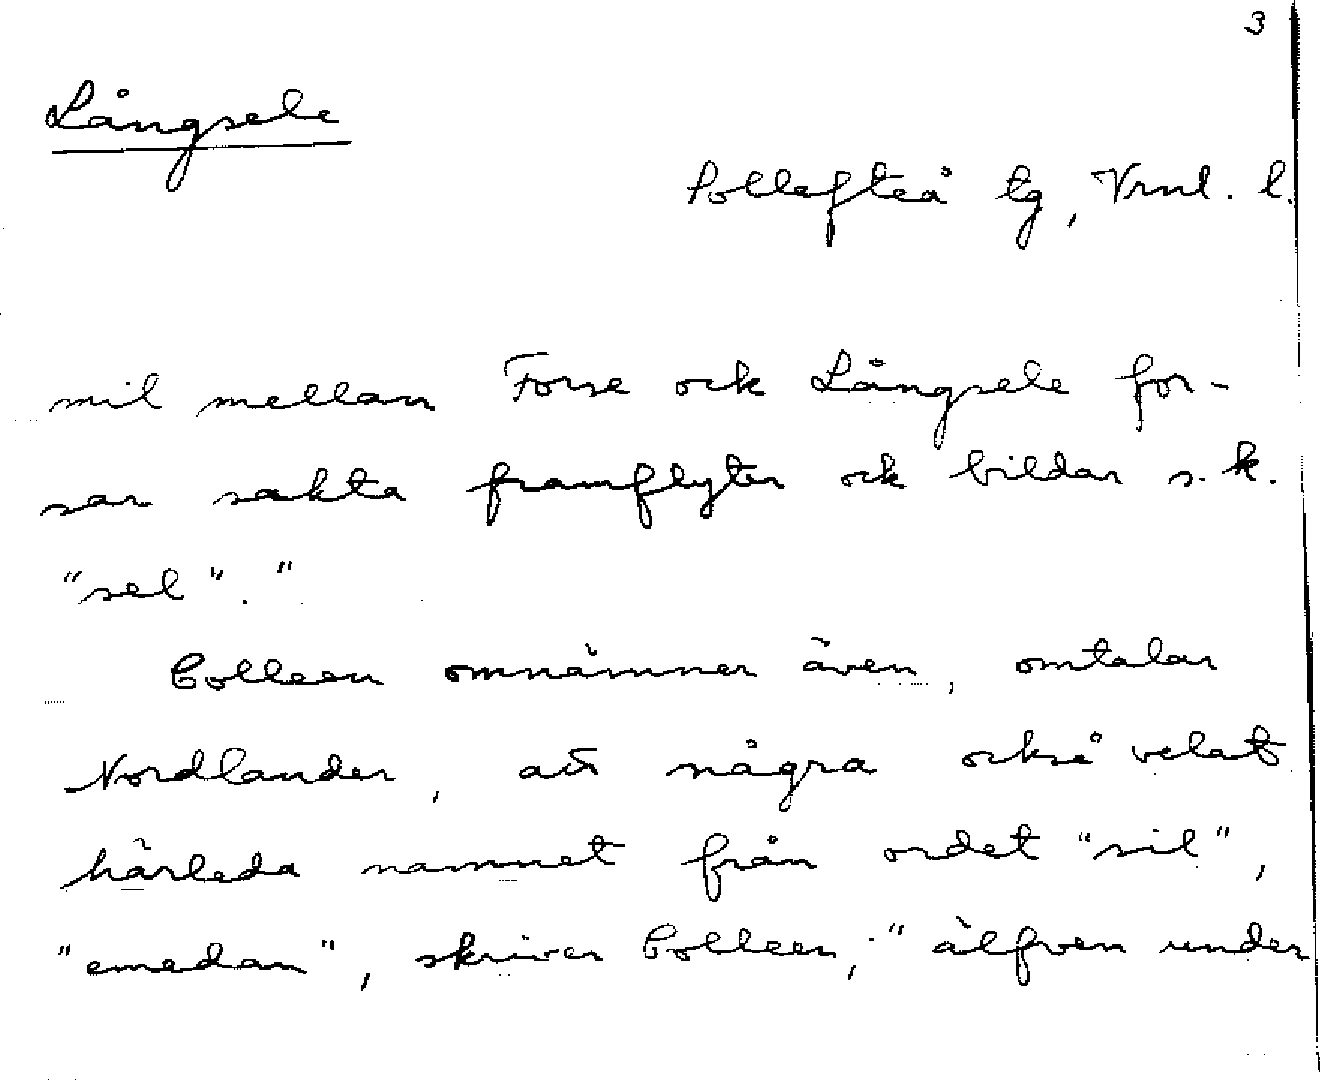 3
Långsele
Sollefteå tg, Vrnl. l.
mil mellan Forse ock Långsele for-
sar sakta framflyter ock bildar s.k.
"sel"."
Colleen omnämner även, omtalar
Nordlander, att några också velat
härleda namnet från ordet "sil",
"emedan", skriver Colleen, "älfven under